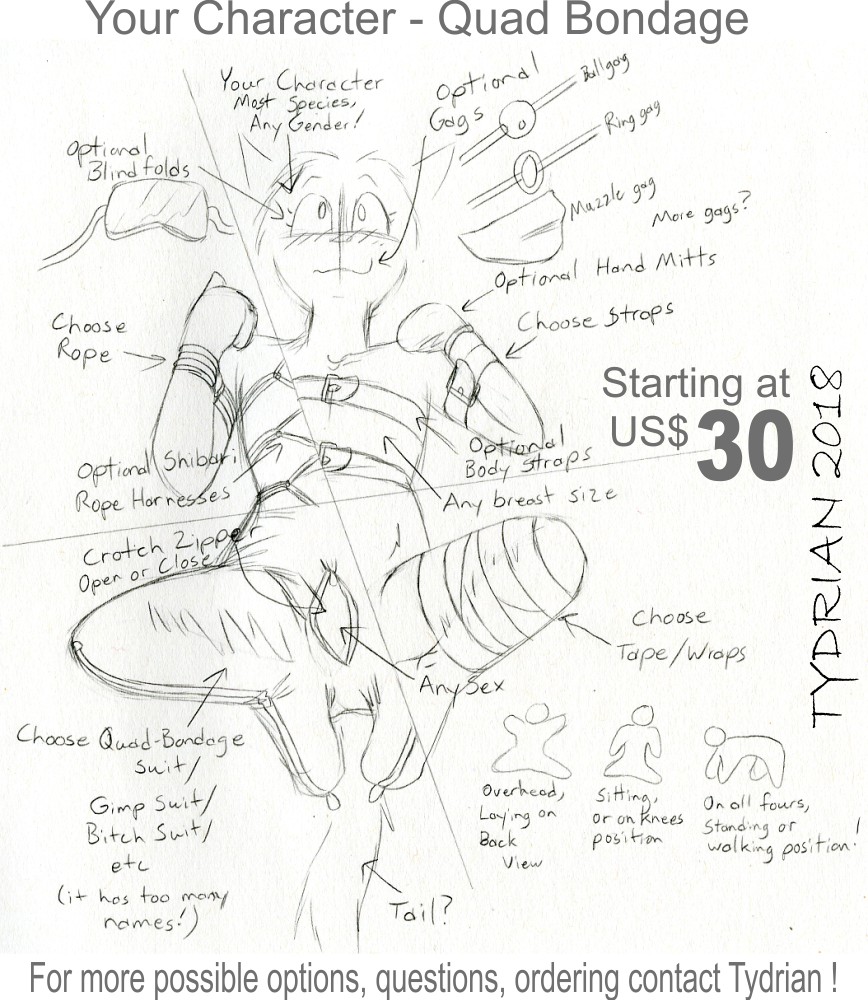 Your Character - Quad Bondage
Your Character
Most Species,
Any Gender!
Optional
Gags
Ball gag
Ring gag
Muzzle gag
More gags?
Optional
Blindfolds
Optional Hand Mitts
Choose Straps
Choose
Rope
Starting at
US$ 30
TYDRIAN 2018
Optional Shibari
Rope Harnesses
Optional
Body Straps
Any breast size
Crotch Zipper
Open or Close
Choose
Tape/Wraps
Any Sex
Choose Quad-Bondage
Suit/
Gimp Suit/
Bitch Suit/
etc
(it has too many
names!)
Overhead,
Laying on
Back
View
Sitting,
or on Knees
position
On all fours,
Standing or
walking position!
Tail?
For more possible options, questions, ordering contact Tydrian !